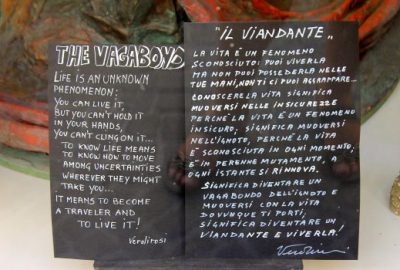 THE VAGABOND
LIFE IS AN UNKNOWN
PHENOMENON:
YOU CAN LIVE IT,
BUT YOU CAN'T HOLD IT
IN YOUR HANDS,
YOU CAN'T CLING ON IT...
TO KNOW LIFE MEANS
TO KNOW HOW TO MOVE
AMONG UNCERTAINTIES
WHEREVER THEY MIGHT
TAKE YOU...
IT MEANS TO BECOME
A TRAVELER AND
TO LIVE IT!
Verdirosi
"IL VIANDANTE"
LA VITA È UN FENOMENO
SCONOSCIUTO: PUOI VIVERLA
MA NON PUOI POSSEDERLA NELLE
TUE MANI, NON TI CI PUOI AGGRAPPARE...
CONOSCERE LA VITA SIGNIFICA
MUOVERSI NELLE INSICUREZZE
PERCHÈ LA VITA È UN FENOMENO
INSICURO, SIGNIFICA MUOVERSI
NELL'IGNOTO, PERCHÈ LA VITA
È SCONOSCIUTA IN OGNI MOMENTO,
E' IN PERENNE MUTAMENTO, A
OGNI ISTANTE SI RINNOVA.
SIGNIFICA DIVENTARE UN
VAGABONDO DELL'IGNOTO E
MUOVERSI CON LA VITA
DOVUNQUE TI PORTI,
SIGNIFICA DIVENTARE UN
VIANDANTE E VIVERLA!
Verdirosi